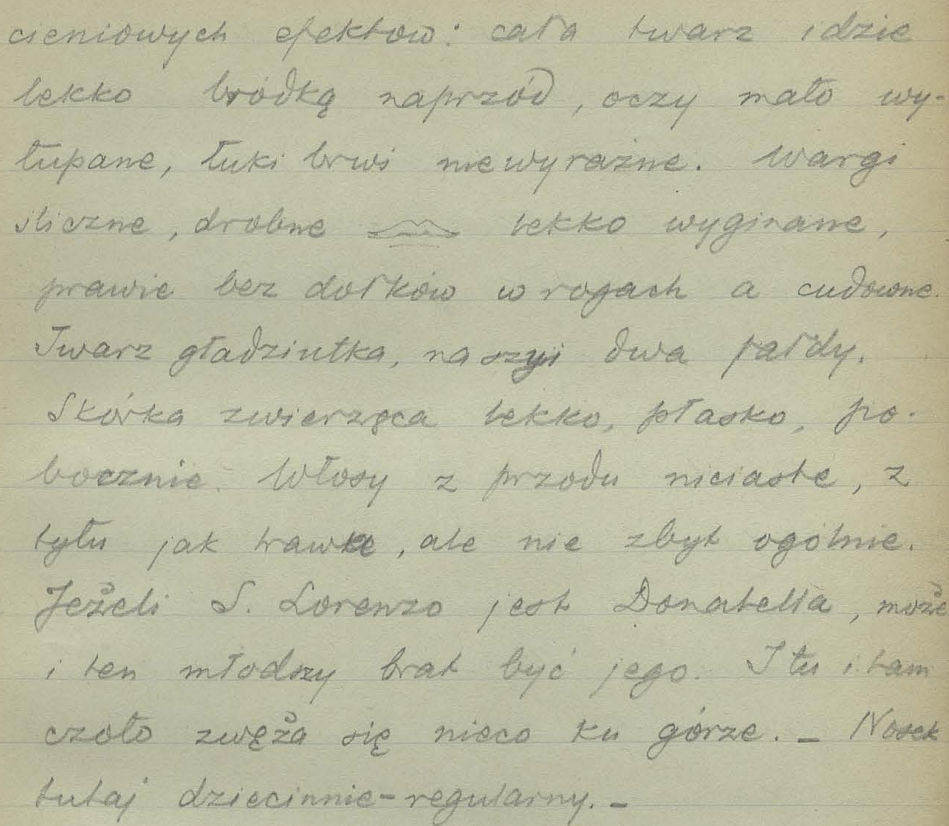 cieniowych efektów: cała twarz idzie
lekko bródką naprzód, oczy mało wy-
łupane, łuki brwi niewyraźne. Wargi
śliczne, drobne lekko wyginane,
prawie bez dołków w rogach a cudowne.
Twarz gładziutka, na szyi dwa fałdy.
Skórka zwierzęca lekko, płasko, po-
bocznie. Włosy z przodu niciaste, z
tyłu jak trawka, ale nie zbyt ogólnie.
Jeżeli S. Lorenzo jest Donatella, może
i ten młodszy brat być jego. I tu i tam
czoło zwęża się nieco ku górze. – Nosek
tutaj dziecinnie-regularny. –